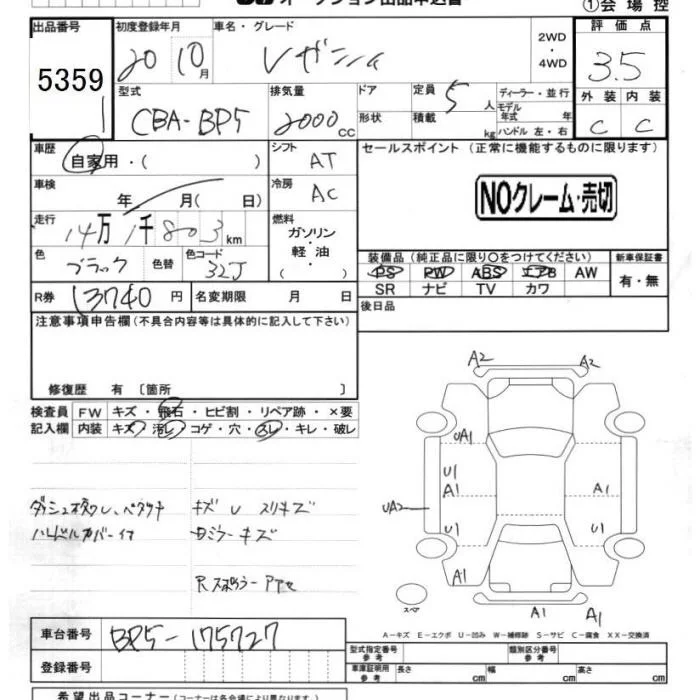 オークション出品申込書
①会場控
出品番号 初度登録年月 車名・グレード 2WD ・ 4WD 評価点
5359 20 10月 レガシィ 3.5
1
型式 排気量 ドア 定員 5人 ディーラー・並行 外装 内装
CBA-BP5 2000CC 形状 積載 kg モデル年式 年 ハンドル 左・右 C C
車歴 自家用・( ) シフト AT セールスポイント(正常に機能するものに限ります)
車検 年 月(日) 冷房 AC NOクレーム・売切
走行 14万1千803km 燃料 ガソリン・軽油・( )
色 ブラック 色替 色コード 32J 装備品(純正品に限り○をつけてください) 新車保証書
PS PW ABS エアB AW 有・無
R券 13740円 名変期限 月 日 SR ナビ TV カワ
注意事項申告欄(不具合内容等は具体的に記入して下さい) 後日品
修復歴 有〔箇所 〕
検査員 FW キズ・飛石・ヒビ割・リペア跡・×要
記入欄 内装 キズ・汚レ・コゲ・穴・スレ・キレ・破レ
A2 A2
UA1
U1
A1 A1
UA2
U1 A1
A1 A1
A1
スペア
キズ U スリキズ
ハンドルカバーイタ
車台番号 BP5-175727
A-キズ E-エクボ U-凹み W-補修跡 S-サビ C-腐食 XX-交換済
登録番号
型式指定番号 参考 類別区分番号 参考
車庫証明用 参考 長さ cm 幅 cm 高さ cm
希望出品コーナー(コーナーは各会場により異なります)